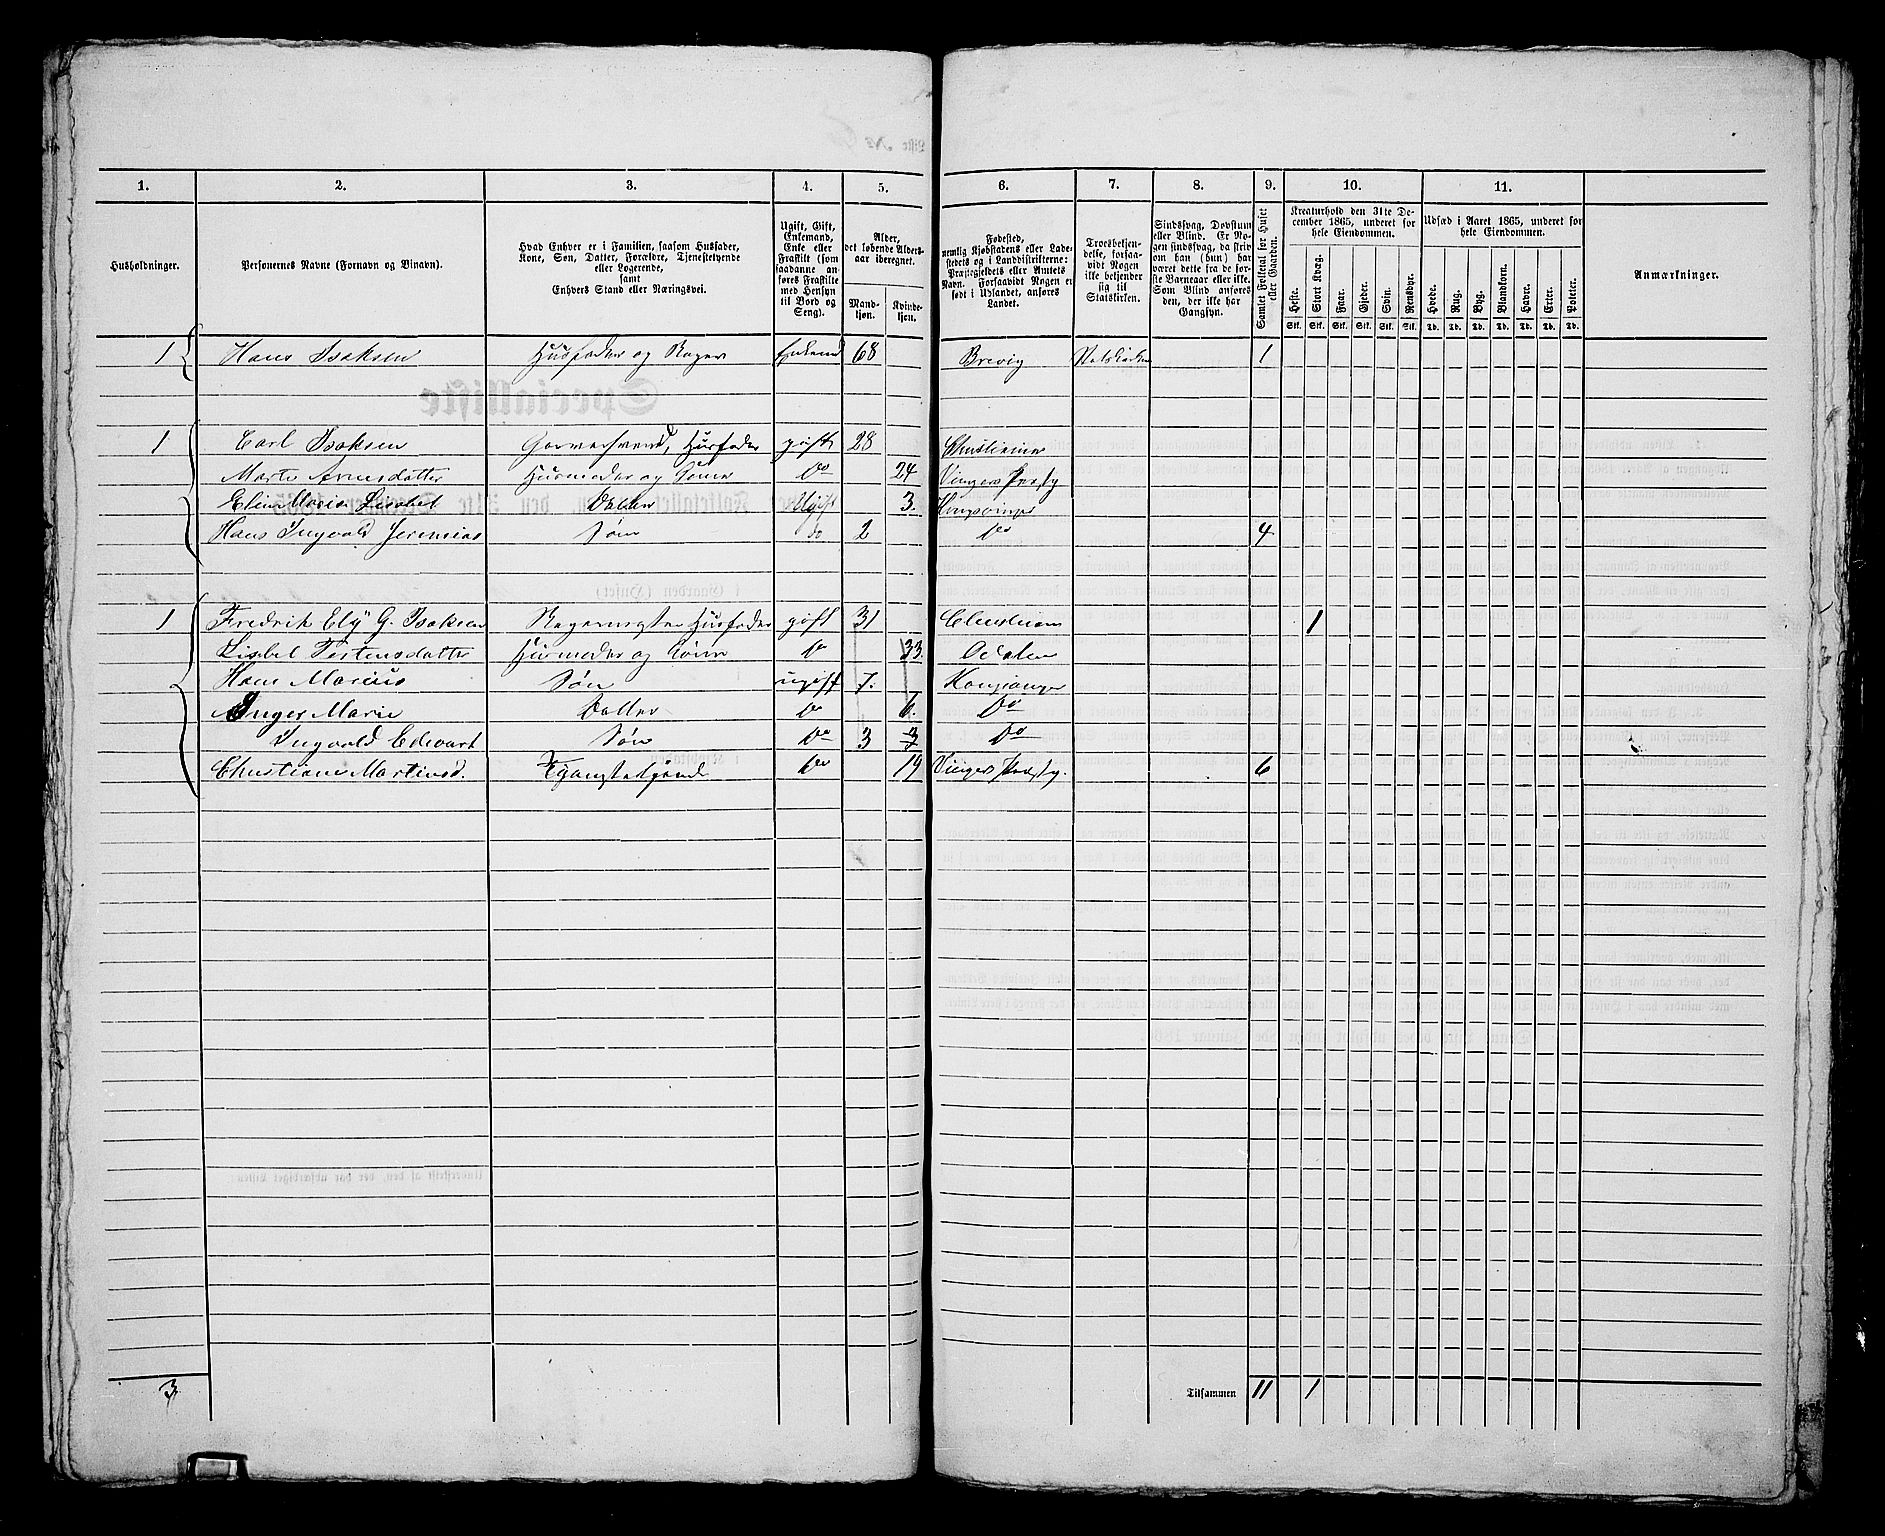 1. 2. 3. 4. 5. 6. 7. 8. 9. 10. 11.
Husholdninger.
Personernes Navne (Fornavn og Binavn).
Hvad Enhver er i Familien, saasom Husfader,
Kone, Søn, Datter, Forældre, Tjenestetyende
eller Logerende,
samt
Enhvers Stand eller Næringsvei.
Ugift, Gift,
Enkemand,
Enke eller
Fraskilt (som
saadanne an-
føres Fraskilte
med Hensyn
til Bord og
Seng).
Alder,
det løbende Alders-
aar iberegnet.
Mand-
kjøn.
Kvinde-
kjøn.
Fødested,
nemlig Kjøbstadens eller Lade-
stedets og i Landdistrikterne:
Præstegjeldets eller Amtets
Navn. Forsaavidt Nogen er
født i Udlandet, anføres
Landet.
Troesbekjen-
delse, forsaa-
vidt Nogen
ikke bekjender
sig til
Statskirken.
Sindssvag, Døvstum
eller Blind. Er No-
gen sindssvag, da skriv
om han (hun) har
været dette fra de før-
ste Barneaar eller ikke.
Som Blind anføres
den, der ikke har
Gangsyn.
Samlet Folketal for Huset
eller Gaarden.
Kreaturhold den 31te De-
cember 1865, underet for
hele Eiendommen.
Heste. Stort Kvæg. Faar. Gjeder. Svin. Rensdyr.
Stk. Stk. Stk. Stk. Stk. Stk.
Udsæd i Aaret 1865, underet for
hele Eiendommen.
Hvede. Rug. Byg. Blandkorn. Havre. Erter. Poteter.
Td. Td. Td. Td. Td. Td. Td.
Anmærkninger.
1 Hans Isaksen Husfader og Bager Enkem 68 Brevig Statskirken 1
1 Carl Isaksen Garversvend, Husfader gift 28 Christiania
Marte Arnesdatter Husmoder og Kone Do 24 Vinger
Elen Marie Lisabet Datter Ugift 3. Kongsvinger
Hans Ingvald Jeremias Søn do 2 Do 4
1 Fredrik Ely G. Isaksen Bagermester Husfader gift 31 Christiania 1
Lisbet Torstensdatter Husmoder og Kone Do 33. Odalen
Hans Marius Søn ugift 7. Kongsvinger
Inger Marie Datter Do 6. Do
Ingvald Edvart Søn Do 3 3 Do
Christiane Martinsd. Do 19 Vinger 6
3 Tilsammen 11 1